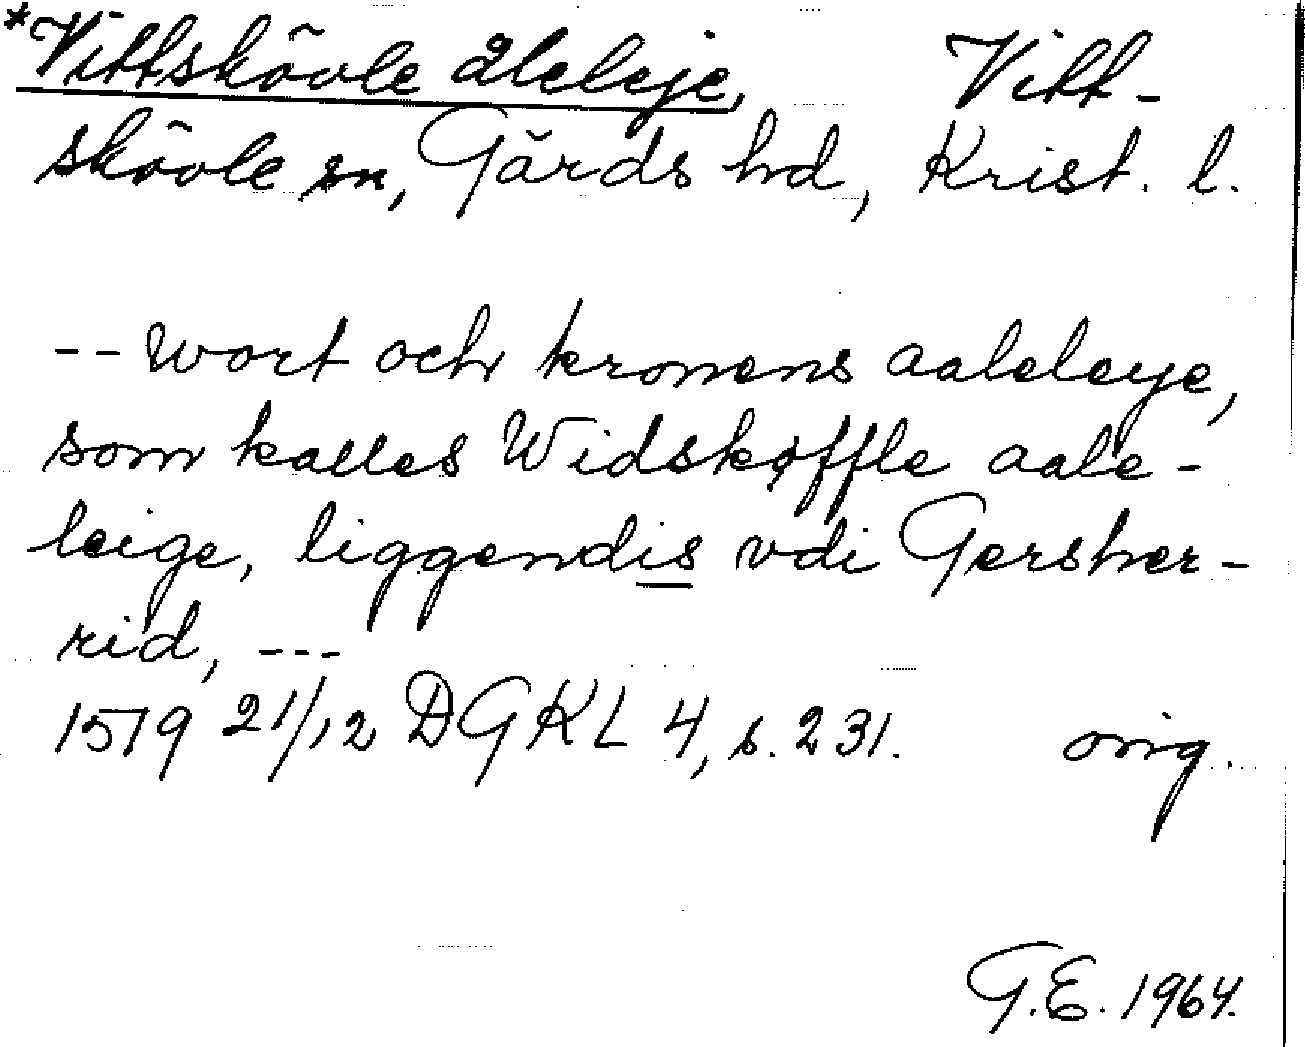 *Vittskövle Åleleje, Vitt-
skövle sn, Gärds hd, Krist. l.
-- wort och kronens aaleleye,
som kalles Widskøffle aale-
leige, liggendis vdi Gersher-
rid, ---
1579 21/12 DGKL 4, s. 231. orig.
G.E. 1964.